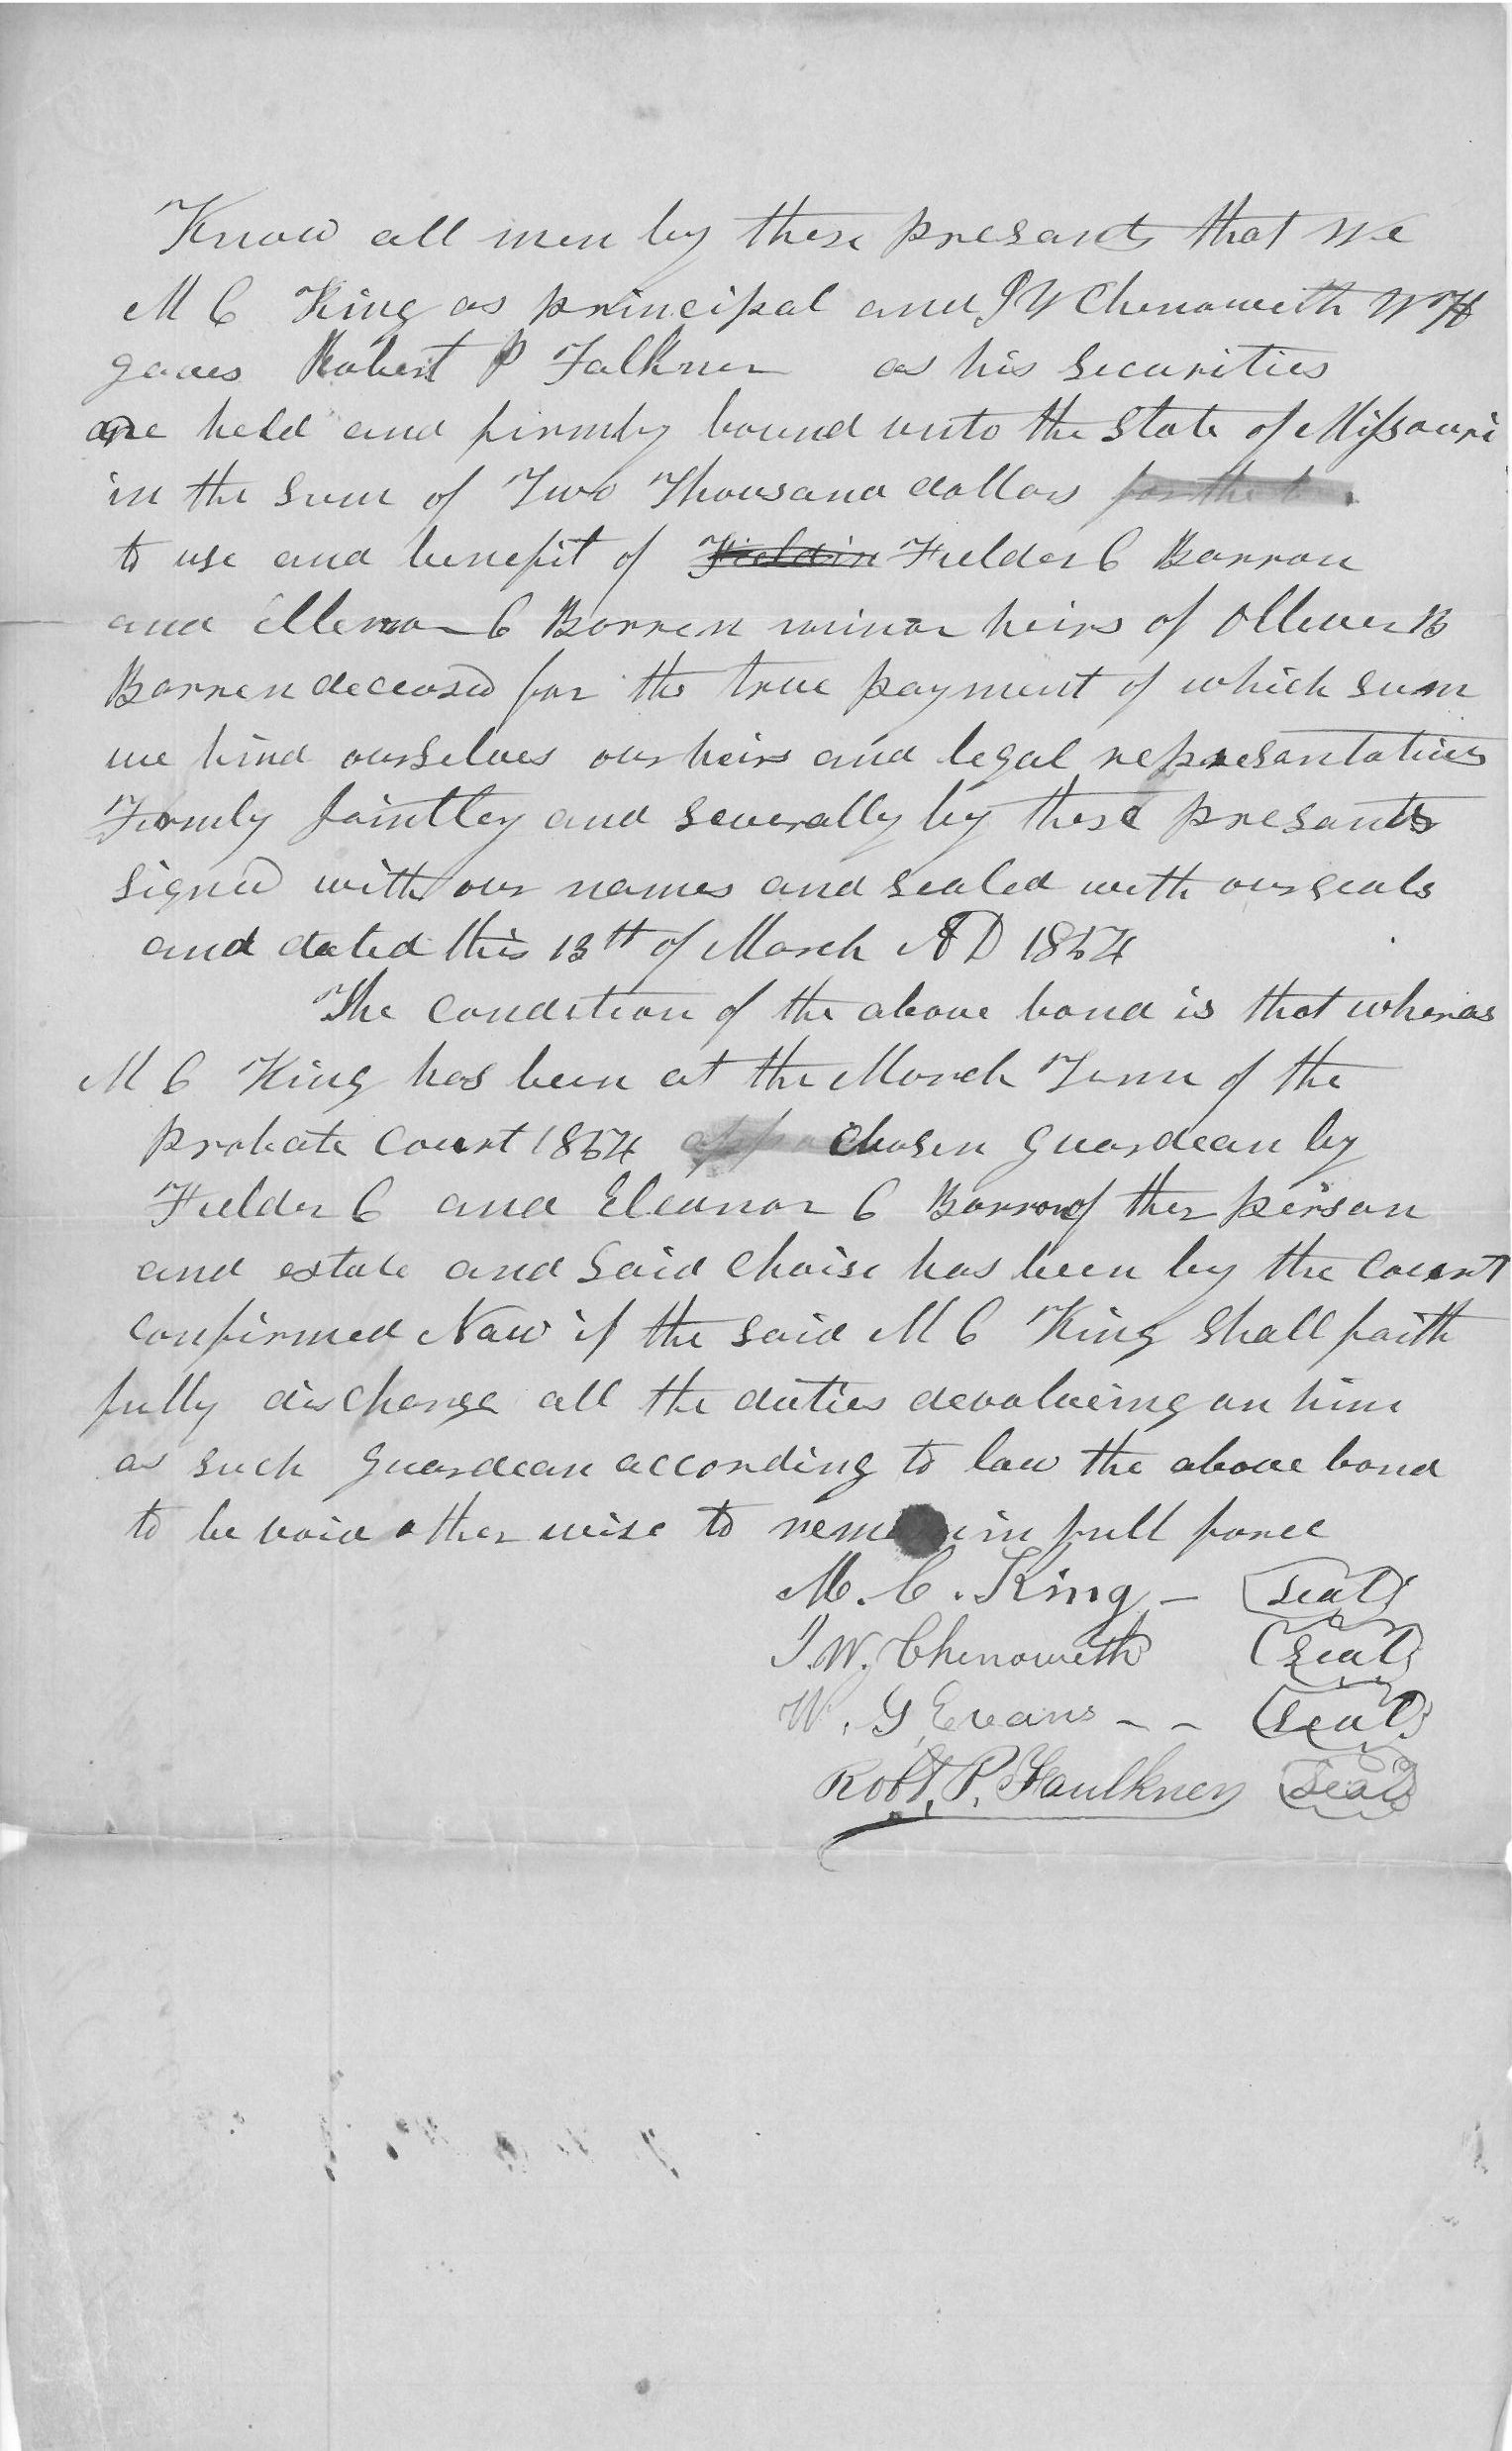 Know all men by these presants that We
M C King as principal and J W Chenoweth W H
Robert P Falkner as his Securities
are held and firmly bound unto the State of Missouri
in the Sum of Two Thousand dollars for the
to use and benefit of Fieldin Fielder C Barron
and Ellenor C Borren minor heirs of Olliver B
Borren deceased for the true payment of which sum
we bind ourselves our heirs and legal represantatives
Firmly Jointley and severally by these presants
signed with our names and sealed with our seals
and dated this 13th of March AD 1854
The condition of the above bond is that wheras
M C King has been at the March Term of the
Probate Court 1854 chosen guardean by
Fielder C and Eleanor C Barron of ther person
and estate and said choise has been by the Court
confirmed Now if the said M C King Shall faith
fully discharge all the duties devolveing on him
as such guardean according to law the above bond
to be void other wise to remain in full force
M. C. King — Seal
J. W. Chenoweth Seal
W. G Evans - - Seal
Robt. P. Faulkner Seal